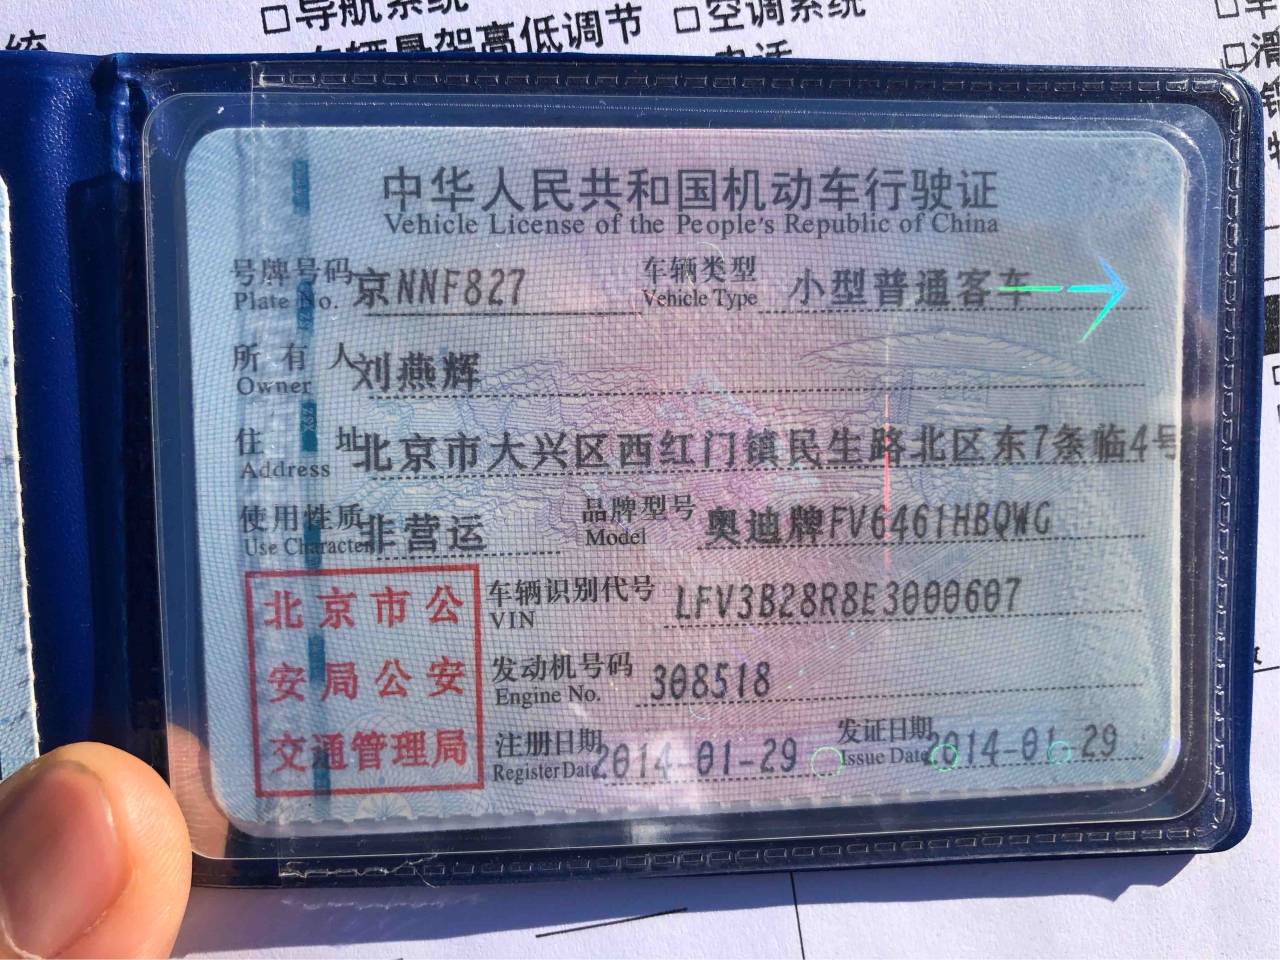 导航系统
空调系统
车辆悬架高低调节
电话
统
滑
中华人民共和国机动车行驶证
Vehicle License of the People's Republic of China
号牌号码 京NNF827 车辆类型 小型普通客车
Plate No. Vehicle Type
所有人 刘燕辉
Owner
住址 北京市大兴区西红门镇民生路北区东7条临4号
Address
使用性质 非营运 品牌型号 奥迪牌FV6461HBQWG
Use Character Model
北京市公
安局公安
交通管理局
车辆识别代号 LFV3B28R8E3000607
VIN
发动机号码 308518
Engine No.
注册日期 2014-01-29 发证日期 2014-01-29
Register Date Issue Date